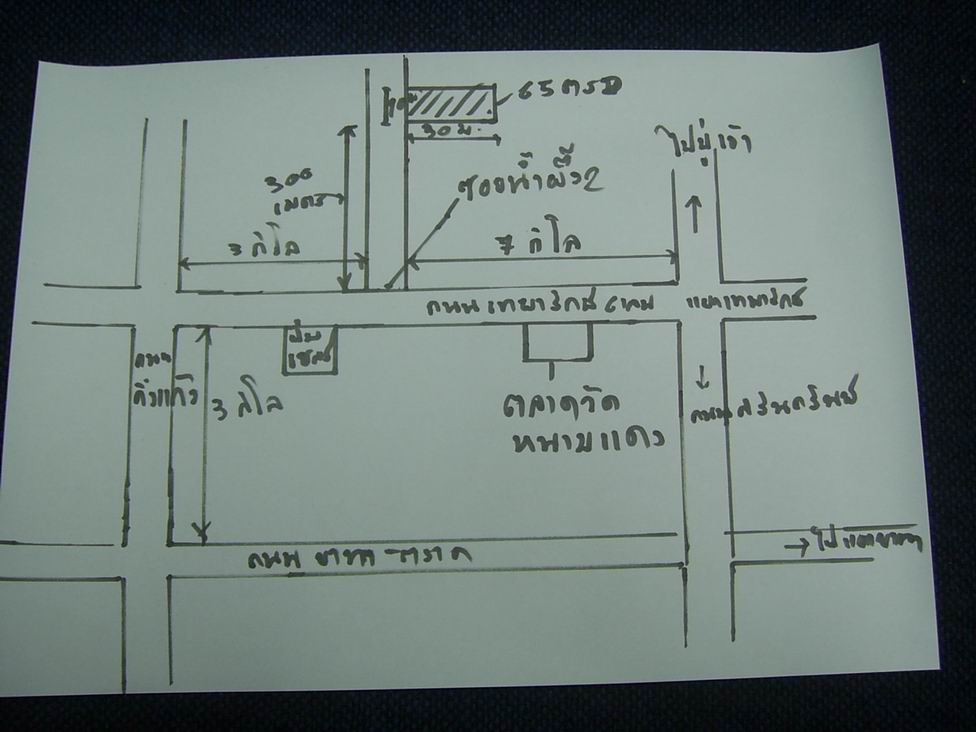 65 ตรว
30 ม.
ไปปู่เจ้า
300
เมตร
ซอยน้ำผึ้ง2
3 กิโล
7 กิโล
ถนน เทพารักษ์
แยกเทพารักษ์
ปั๊ม
เชลล์
ถนน
กิ่งแก้ว
3 กิโล
ตลาดวัด
หนามแดง
ถนนศรีนครินทร์
ถนน บางนา-ตราด
ไปแยกบางนา